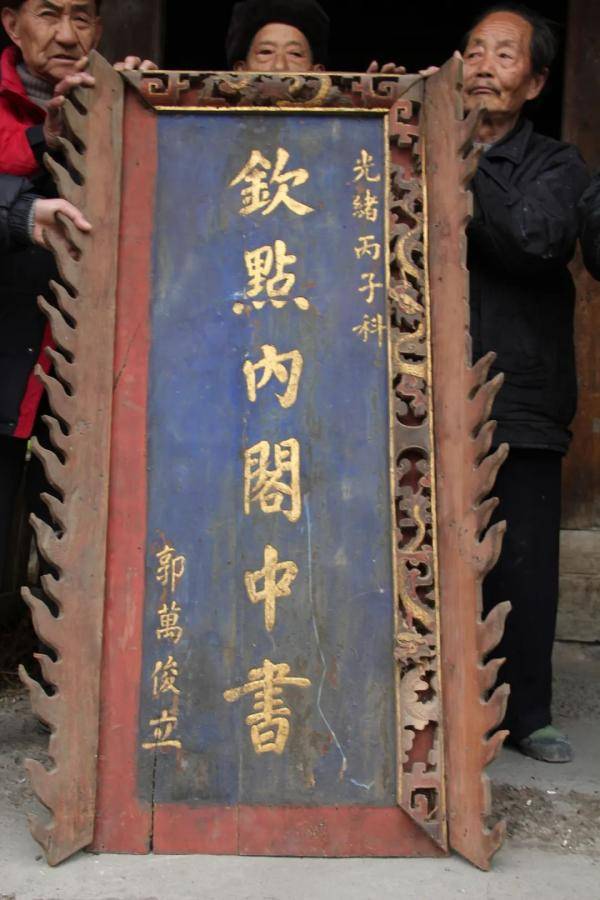 光緒丙子科
欽點內閣中書
郭萬俊立